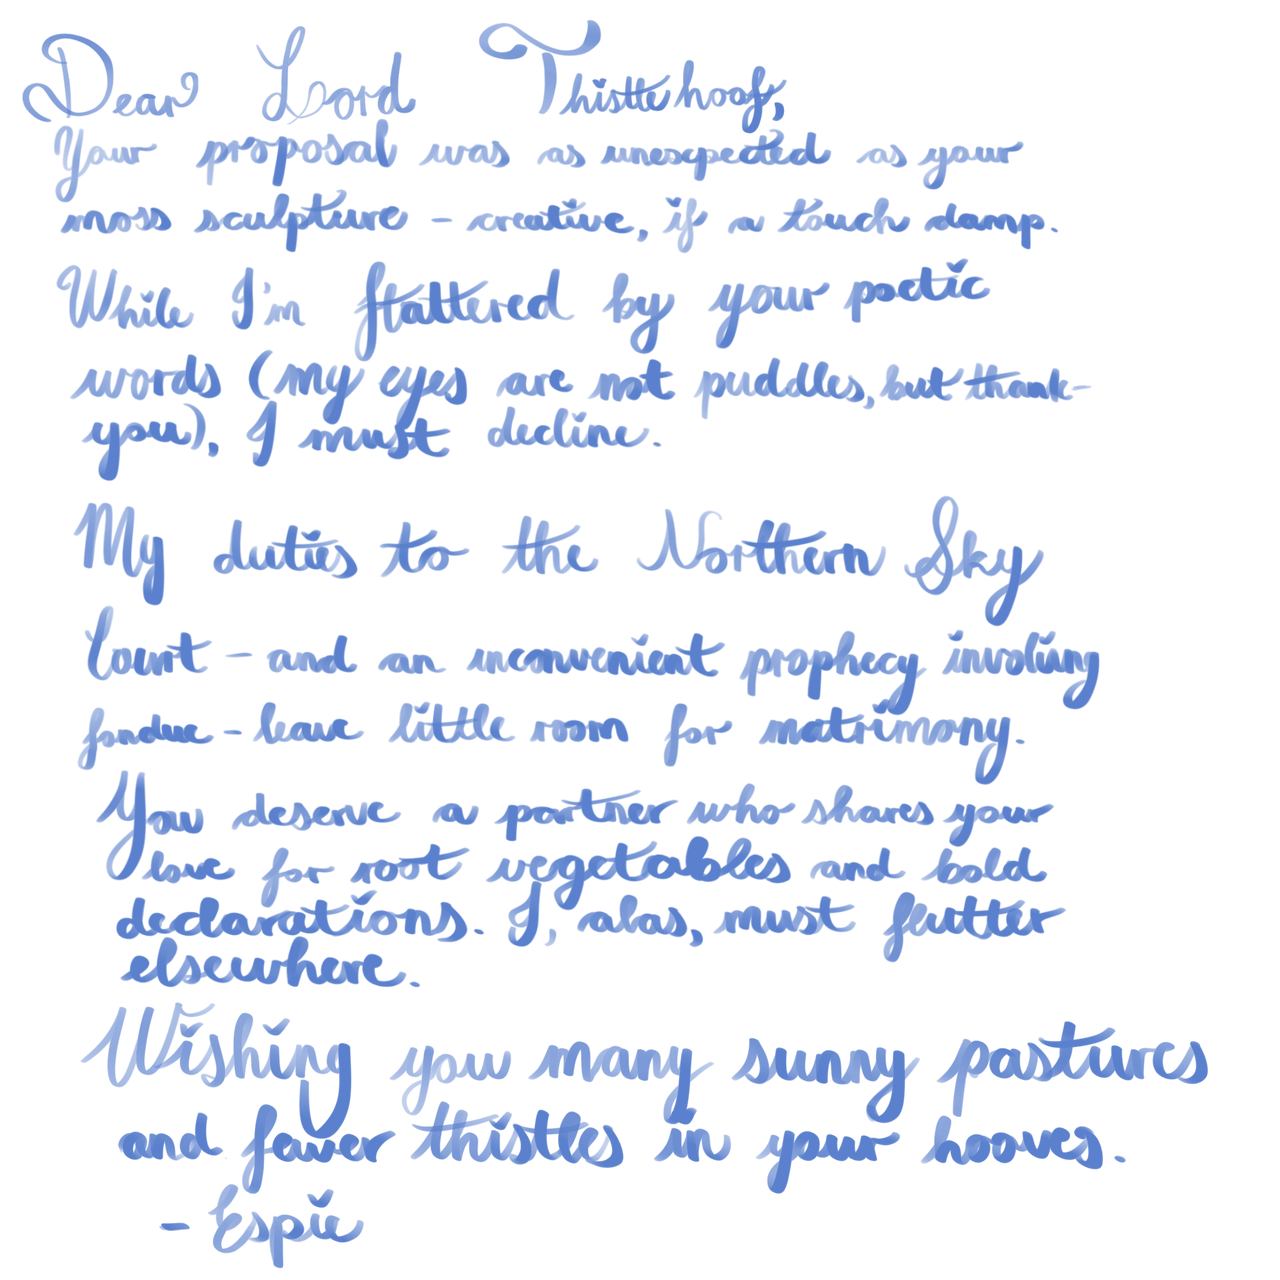 Dear Lord Thistlehoof,
Your proposal was as unexpected as your
moss sculpture – creative, if a touch damp.
While I'm flattered by your poetic
words (my eyes are not puddles, but thank-
you), I must decline.
My duties to the Northern Sky
Court – and an inconvenient prophecy involving
fondue – leave little room for matrimony.
You deserve a partner who shares your
love for root vegetables and bold
declarations. I, alas, must flutter
elsewhere.
Wishing you many sunny pastures
and fewer thistles in your hooves.
– Espie